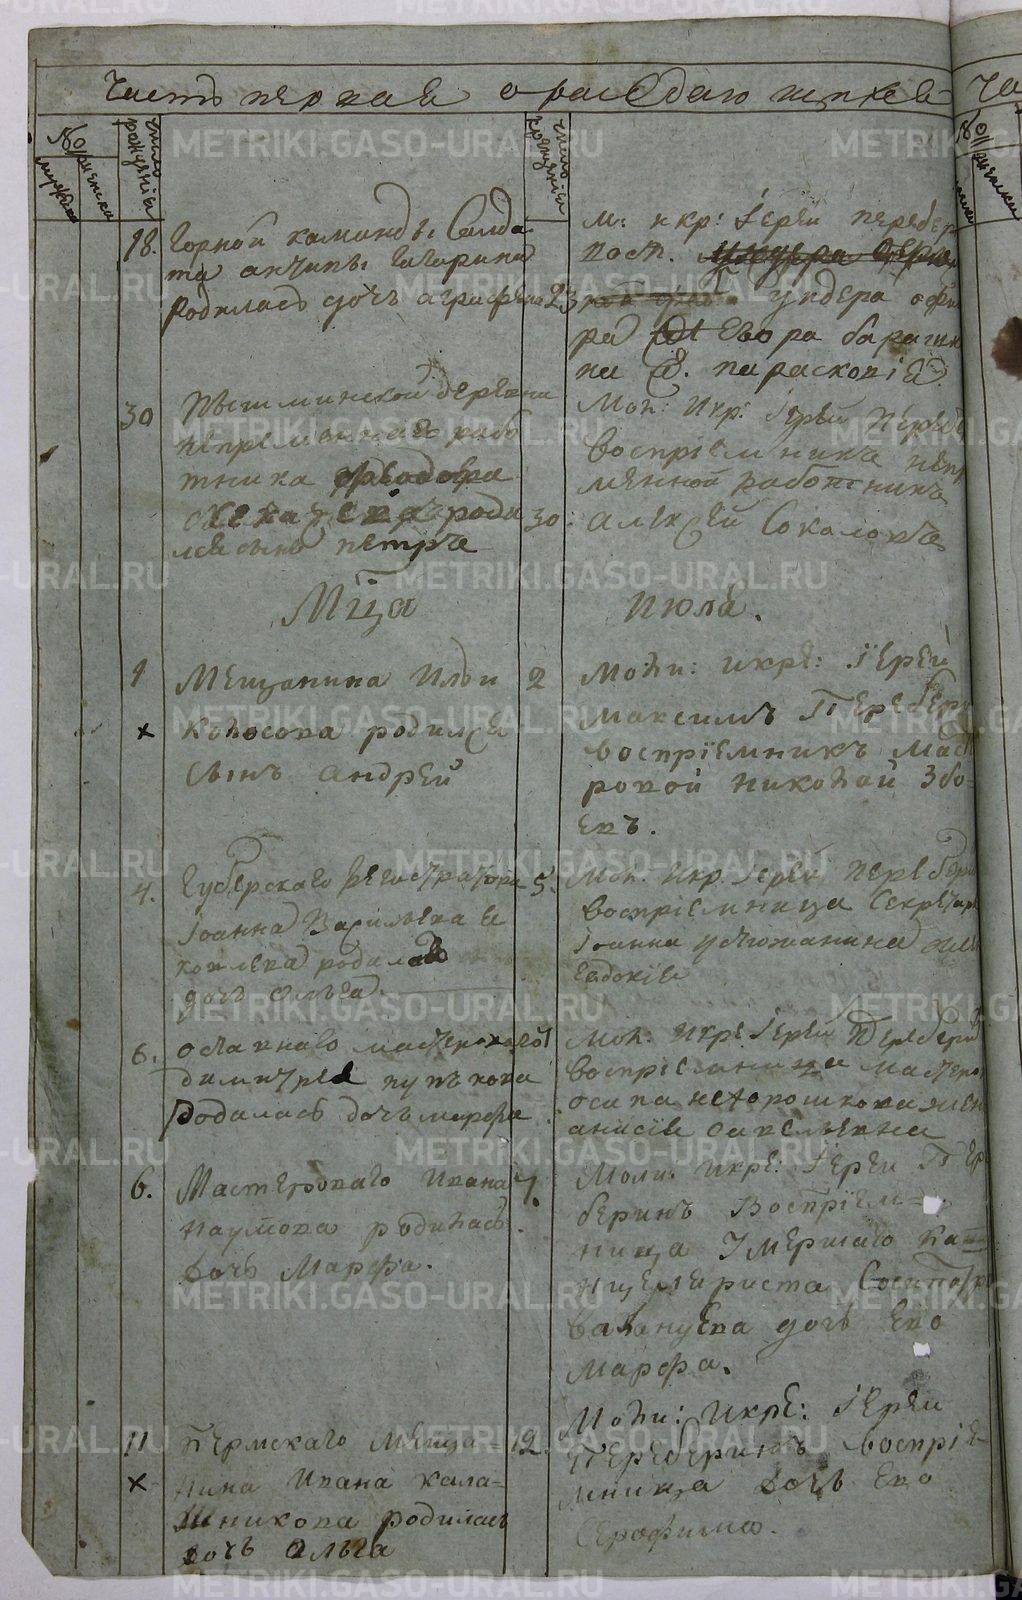 Часть первая о раждающихся
число рождения
число крещения
18.
Горной команды Солда
та Антипы Гагарина
родилась дочь Аграфена
23
м: икр: Iерей переберин
восп.
ундера офи
ра Егора
на Ѳ. параскопія
30
Пышминской деревни
непременнаго рабо
тника Феодора
роди
лся сынъ петръ
30
Мол: Икр: Iерей Переб
восприемникъ непр
менной работникъ
Алексей Соколовъ
Мца
Июля.
1
Мещанина Ильи
Колосова родился
сынъ Андрей
2
Моли: икре: Iерей
Максимъ Перебери
восприемникъ Маст
ровой Николай Збо-
евъ.
4.
Губерскаго регистратора
Iоанна Васильева
родилась
дочь Ольга.
5.
Мол: Икр Iерей Перебери
восприемница Секретаря
Iоанна устюжанина жена
Евдокия
6.
отставнаго мастероваго
димитрея пупкова
родилась дочь марфа
Мол: Икре Iерей Перебери
восприемница мастеров
осипа нехорошкова жен
анисия савельевна
6.
Мастероваго Ивана
Наумова родилась
дочь Марфа.
7.
Моли: Икре: Iерей Пере
беринъ Восприем-
ница Умершаго Кан
целяриста
дочь Ево
Марфа.
11
Пермскаго Меща-
нина Ивана Кала-
шникова родилась
дочь Ольга
12.
Моли: Икре: Iерей
Переберинъ восприе-
мница дочь Ево
Серафима.
METRIKI.GASO-URAL.RU